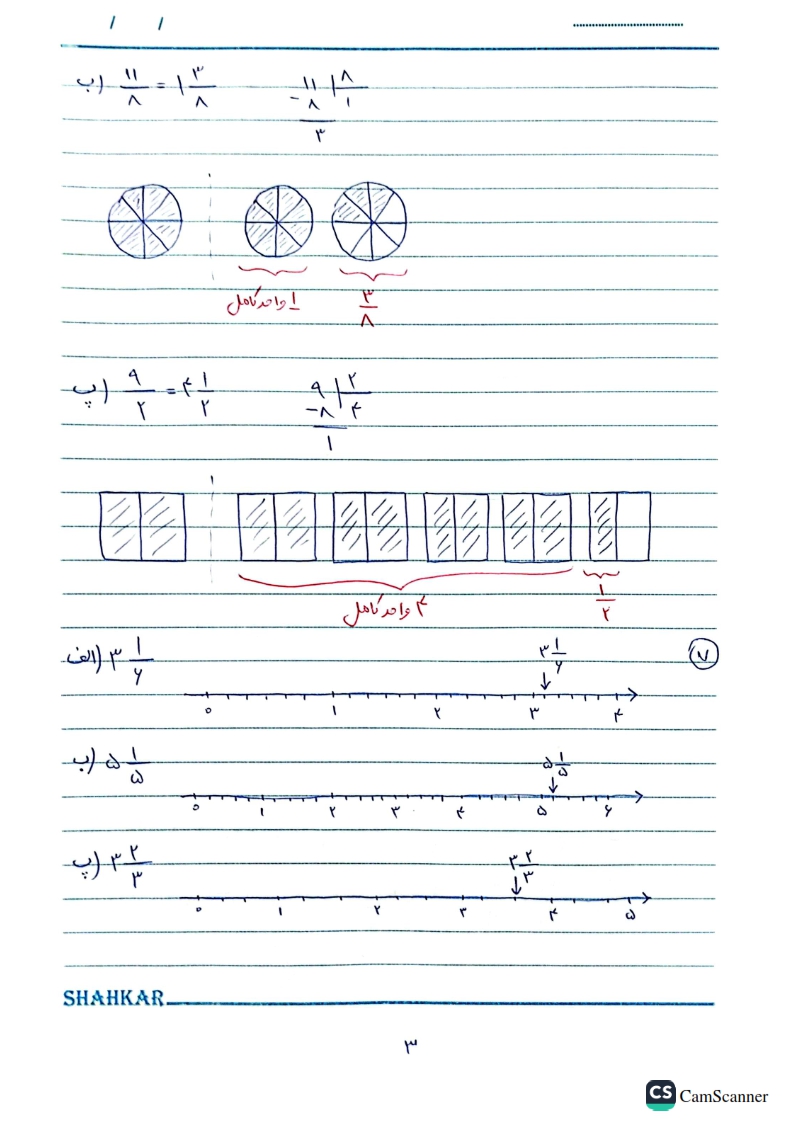 / /
ب) ۱۱/۸ = ۱ ۳/۸
۱۱ | ۸
-۸ | ۱
۳
۱ واحد کامل
۳/۸
پ) ۹/۲ = ۴ ۱/۲
۹ | ۲
-۸ | ۴
۱
۴ واحد کامل
۱/۲
۷
الف) ۳ ۱/۶
۳ ۱/۶
۰ ۱ ۲ ۳ ۴
ب) ۵ ۱/۵
۵ ۱/۵
۰ ۱ ۲ ۳ ۴ ۵ ۶
پ) ۳ ۲/۳
۳ ۲/۳
۰ ۱ ۲ ۳ ۴ ۵
SHAHKAR
۳
CS CamScanner